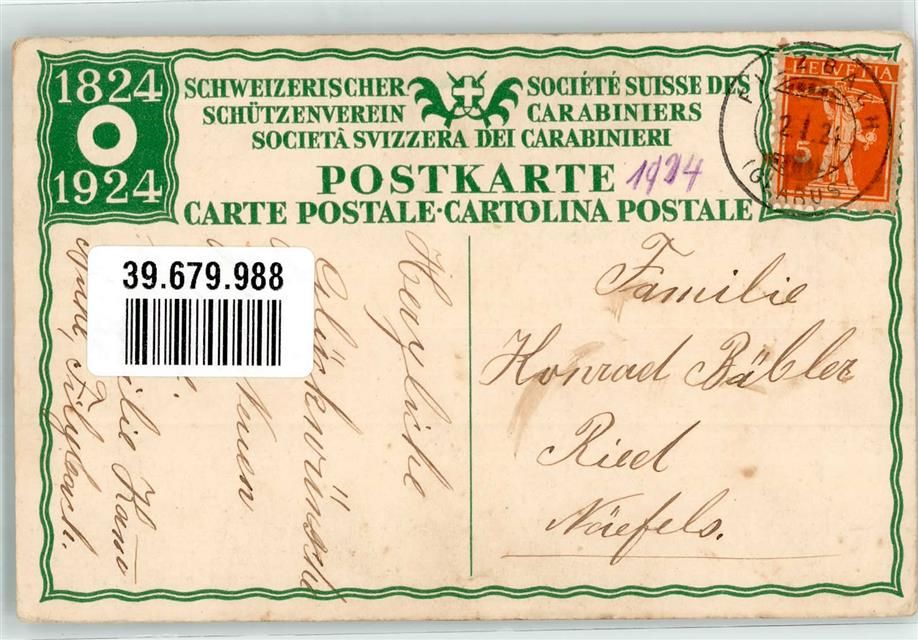 1824
1924
SCHWEIZERISCHER
SCHÜTZENVEREIN
SOCIÉTÉ SUISSE DES
CARABINIERS
SOCIETÀ SVIZZERA DEI CARABINIERI
POSTKARTE
1924
CARTE POSTALE·CARTOLINA POSTALE
HELVETIA
5
(GLARUS)
39.679.988
Herzliche
Glückwünsche
Neuen
Familie
Konrad Bäbler
Ried
Näefels.